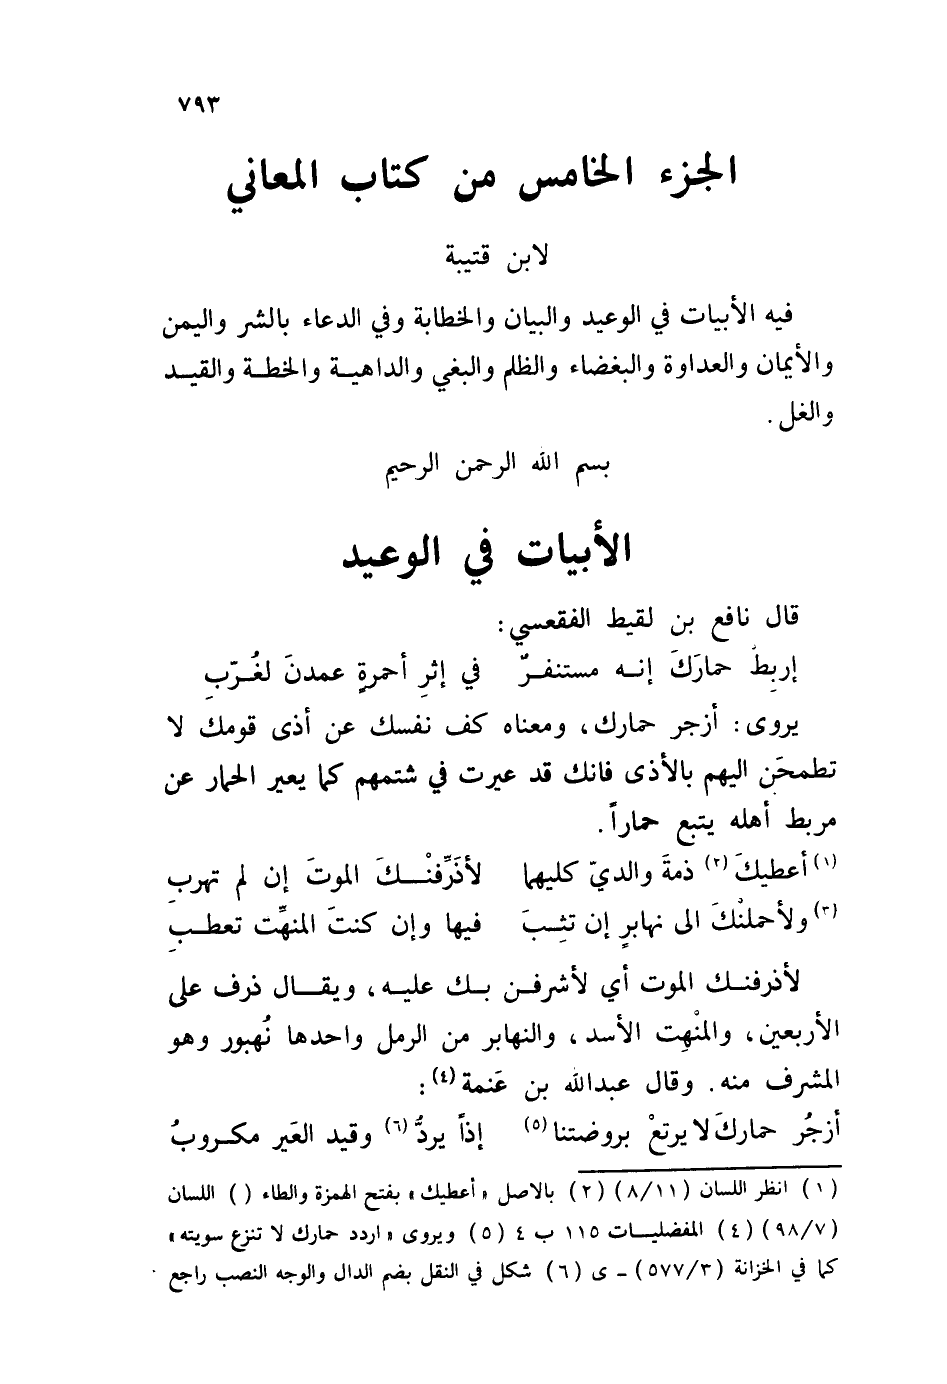 ٧٩٣
الجزء الخامس من كتاب المعاني
لابن قتيبة
فيه الأبيات في الوعيد والبيان والخطابة وفي الدعاء بالشر واليمن
والأيمان والعداوة والبغضاء والظلم والبغي والداهيـة والخطـة والقيـد
والغل .
بسم الله الرحمن الرحيم
الأبيات في الوعيد
قال نافع بن لقيط الفقعسي :
إربِطْ حمارَكَ إنـه مستنفـرٌ في إثرِ أحمرةٍ عمدنَ لغُرّبِ
يروى : أزجر حمارك ، ومعناه كف نفسك عن أذى قومك لا
تطمحَن اليهم بالأذى فانك قد عيرت في شتمهم كما يعير الحمار عن
مربط أهله يتبع حماراً .
(١) أعطيكَ (٢) ذمةَ والديّ كليهما لأذَرِّفنْـكَ الموتَ إن لم تهربِ
(٣) ولأحملنْكَ الى نهابرٍ إن تثِـبَ فيها وإن كنتَ المنهِّت تعطـبِ
لأذرفنـك الموت أي لأشرفـن بـك عليـه ، ويقـال ذرف على
الأربعين ، والمنْهِت الأسد ، والنهابر من الرمل واحدها نُهبور وهو
المشرف منه . وقال عبدالله بن عَنمة (٤) :
أزجُر حماركَ لا يرتعْ بروضتنا (٥) إذاً يردُّ (٦) وقيد العَير مكـروبُ
(١) انظر اللسان (٨/١١) (٢) بالاصل « أعطيك » بفتح الهمزة والطاء ( ) اللسان
(٩٨/٧) (٤) المفضليـات ١١٥ ب ٤ (٥) ويروى « اردد حمارك لا تنزع سويته »
كما في الخزانة (٥٧٧/٣) ــ ى (٦) شكل في النقل بضم الدال والوجه النصب راجع